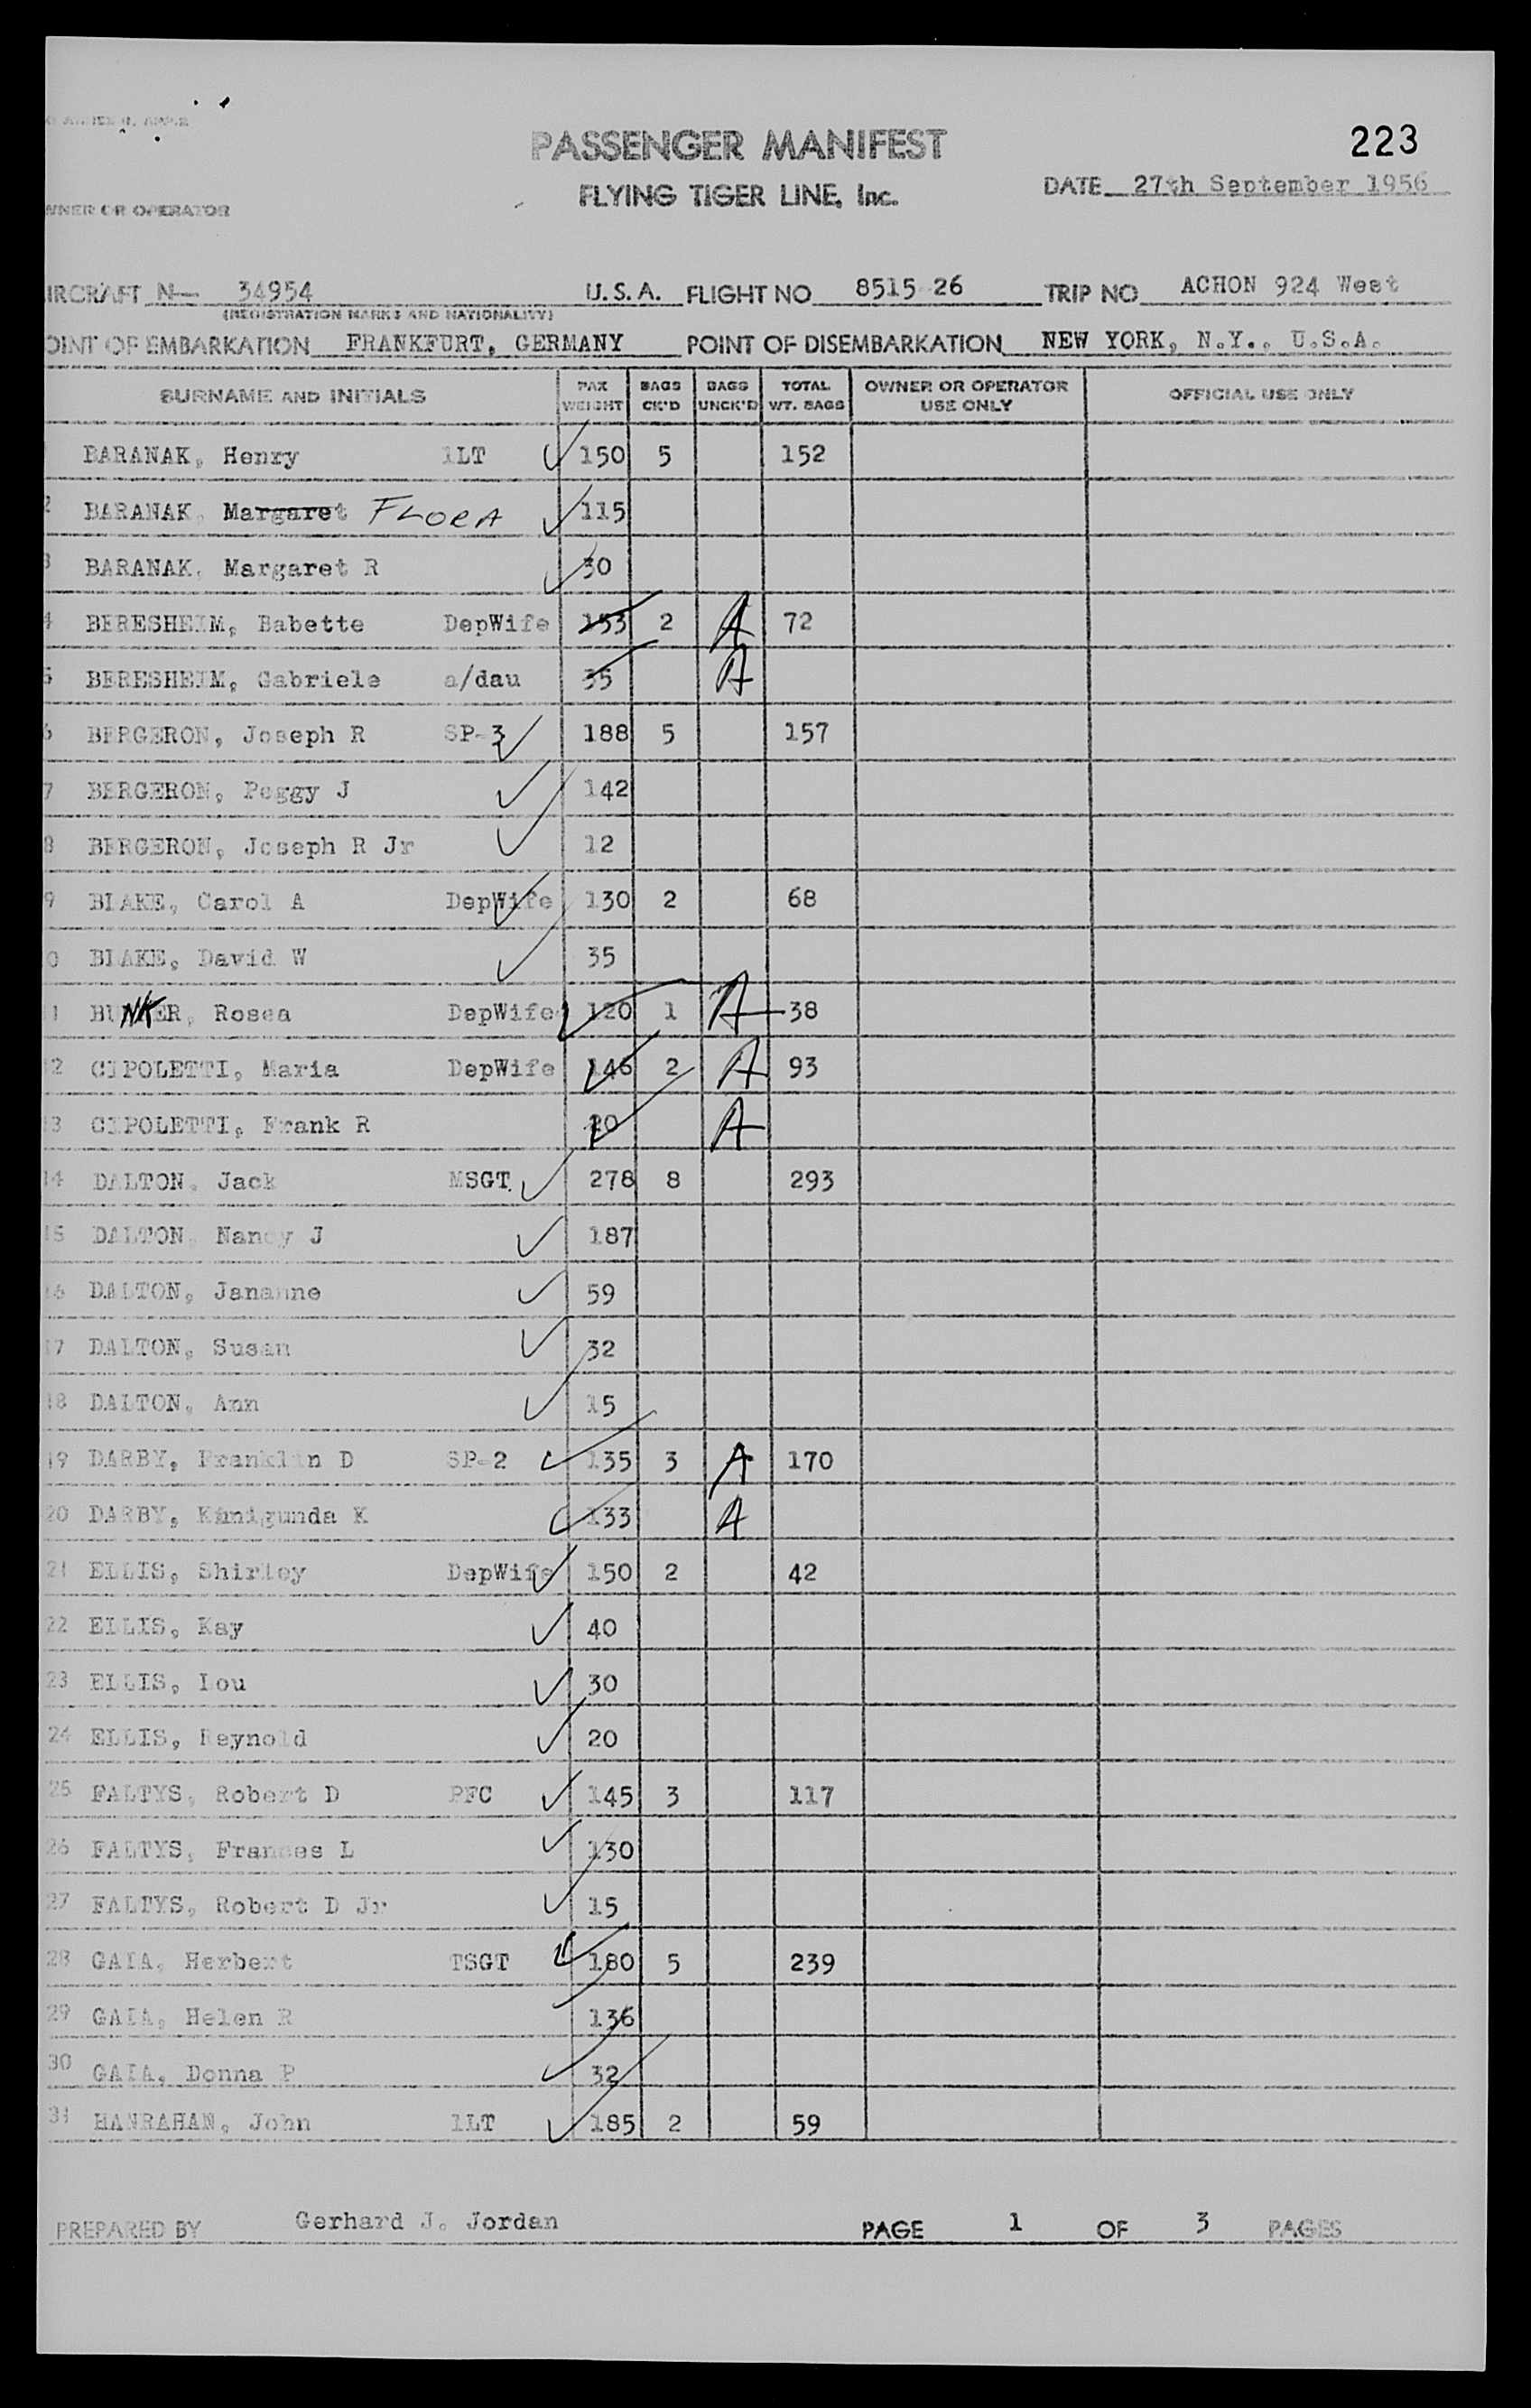 PASSENGER MANIFEST
223
FLYING TIGER LINE, Inc.
DATE 27th September 1956
WNER OR OPERATOR
IRCRAFT N— 34954 U.S.A. FLIGHT NO 8515-26 TRIP NO ACHON 924 West
(REGISTRATION MARKS AND NATIONALITY)
OINT OF EMBARKATION FRANKFURT, GERMANY POINT OF DISEMBARKATION NEW YORK, N.Y., U.S.A.
SURNAME AND INITIALS PAX WEIGHT BAGS CK'D BAGS UNCK'D TOTAL WT. BAGS OWNER OR OPERATOR USE ONLY OFFICIAL USE ONLY
BARANAK, Henry 1LT 150 5 152
2 BARANAK, Margaret FLORA 115
3 BARANAK, Margaret R 30
4 BERESHEIM, Babette DepWife 153 2 A 72
5 BERESHEIM, Gabriele a/dau 35 A
6 BERGERON, Joseph R SP-3 188 5 157
7 BERGERON, Peggy J 142
8 BERGERON, Joseph R Jr 12
9 BLAKE, Carol A DepWife 130 2 68
0 BLAKE, David W 35
1 BUNKER, Rosea DepWife 120 1 A 38
12 CIPOLETTI, Maria DepWife 146 2 A 93
13 CIPOLETTI, Frank R 20 A
14 DALTON, Jack MSGT 278 8 293
15 DALTON, Nancy J 187
16 DALTON, Jananne 59
17 DALTON, Susan 32
18 DALTON, Ann 15
19 DARBY, Franklin D SP-2 135 3 A 170
20 DARBY, Kunigunda K 133 A
21 ELLIS, Shirley DepWife 150 2 42
22 ELLIS, Kay 40
23 ELLIS, Lou 30
24 ELLIS, Reynold 20
25 FALTYS, Robert D PFC 145 3 117
26 FALTYS, Frances L 130
27 FALTYS, Robert D Jr 15
28 GAIA, Herbert TSGT 180 5 239
29 GAIA, Helen R 136
30 GAIA, Donna P 32
31 HANRAHAN, John 1LT 185 2 59
PREPARED BY Gerhard J. Jordan PAGE 1 OF 3 PAGES